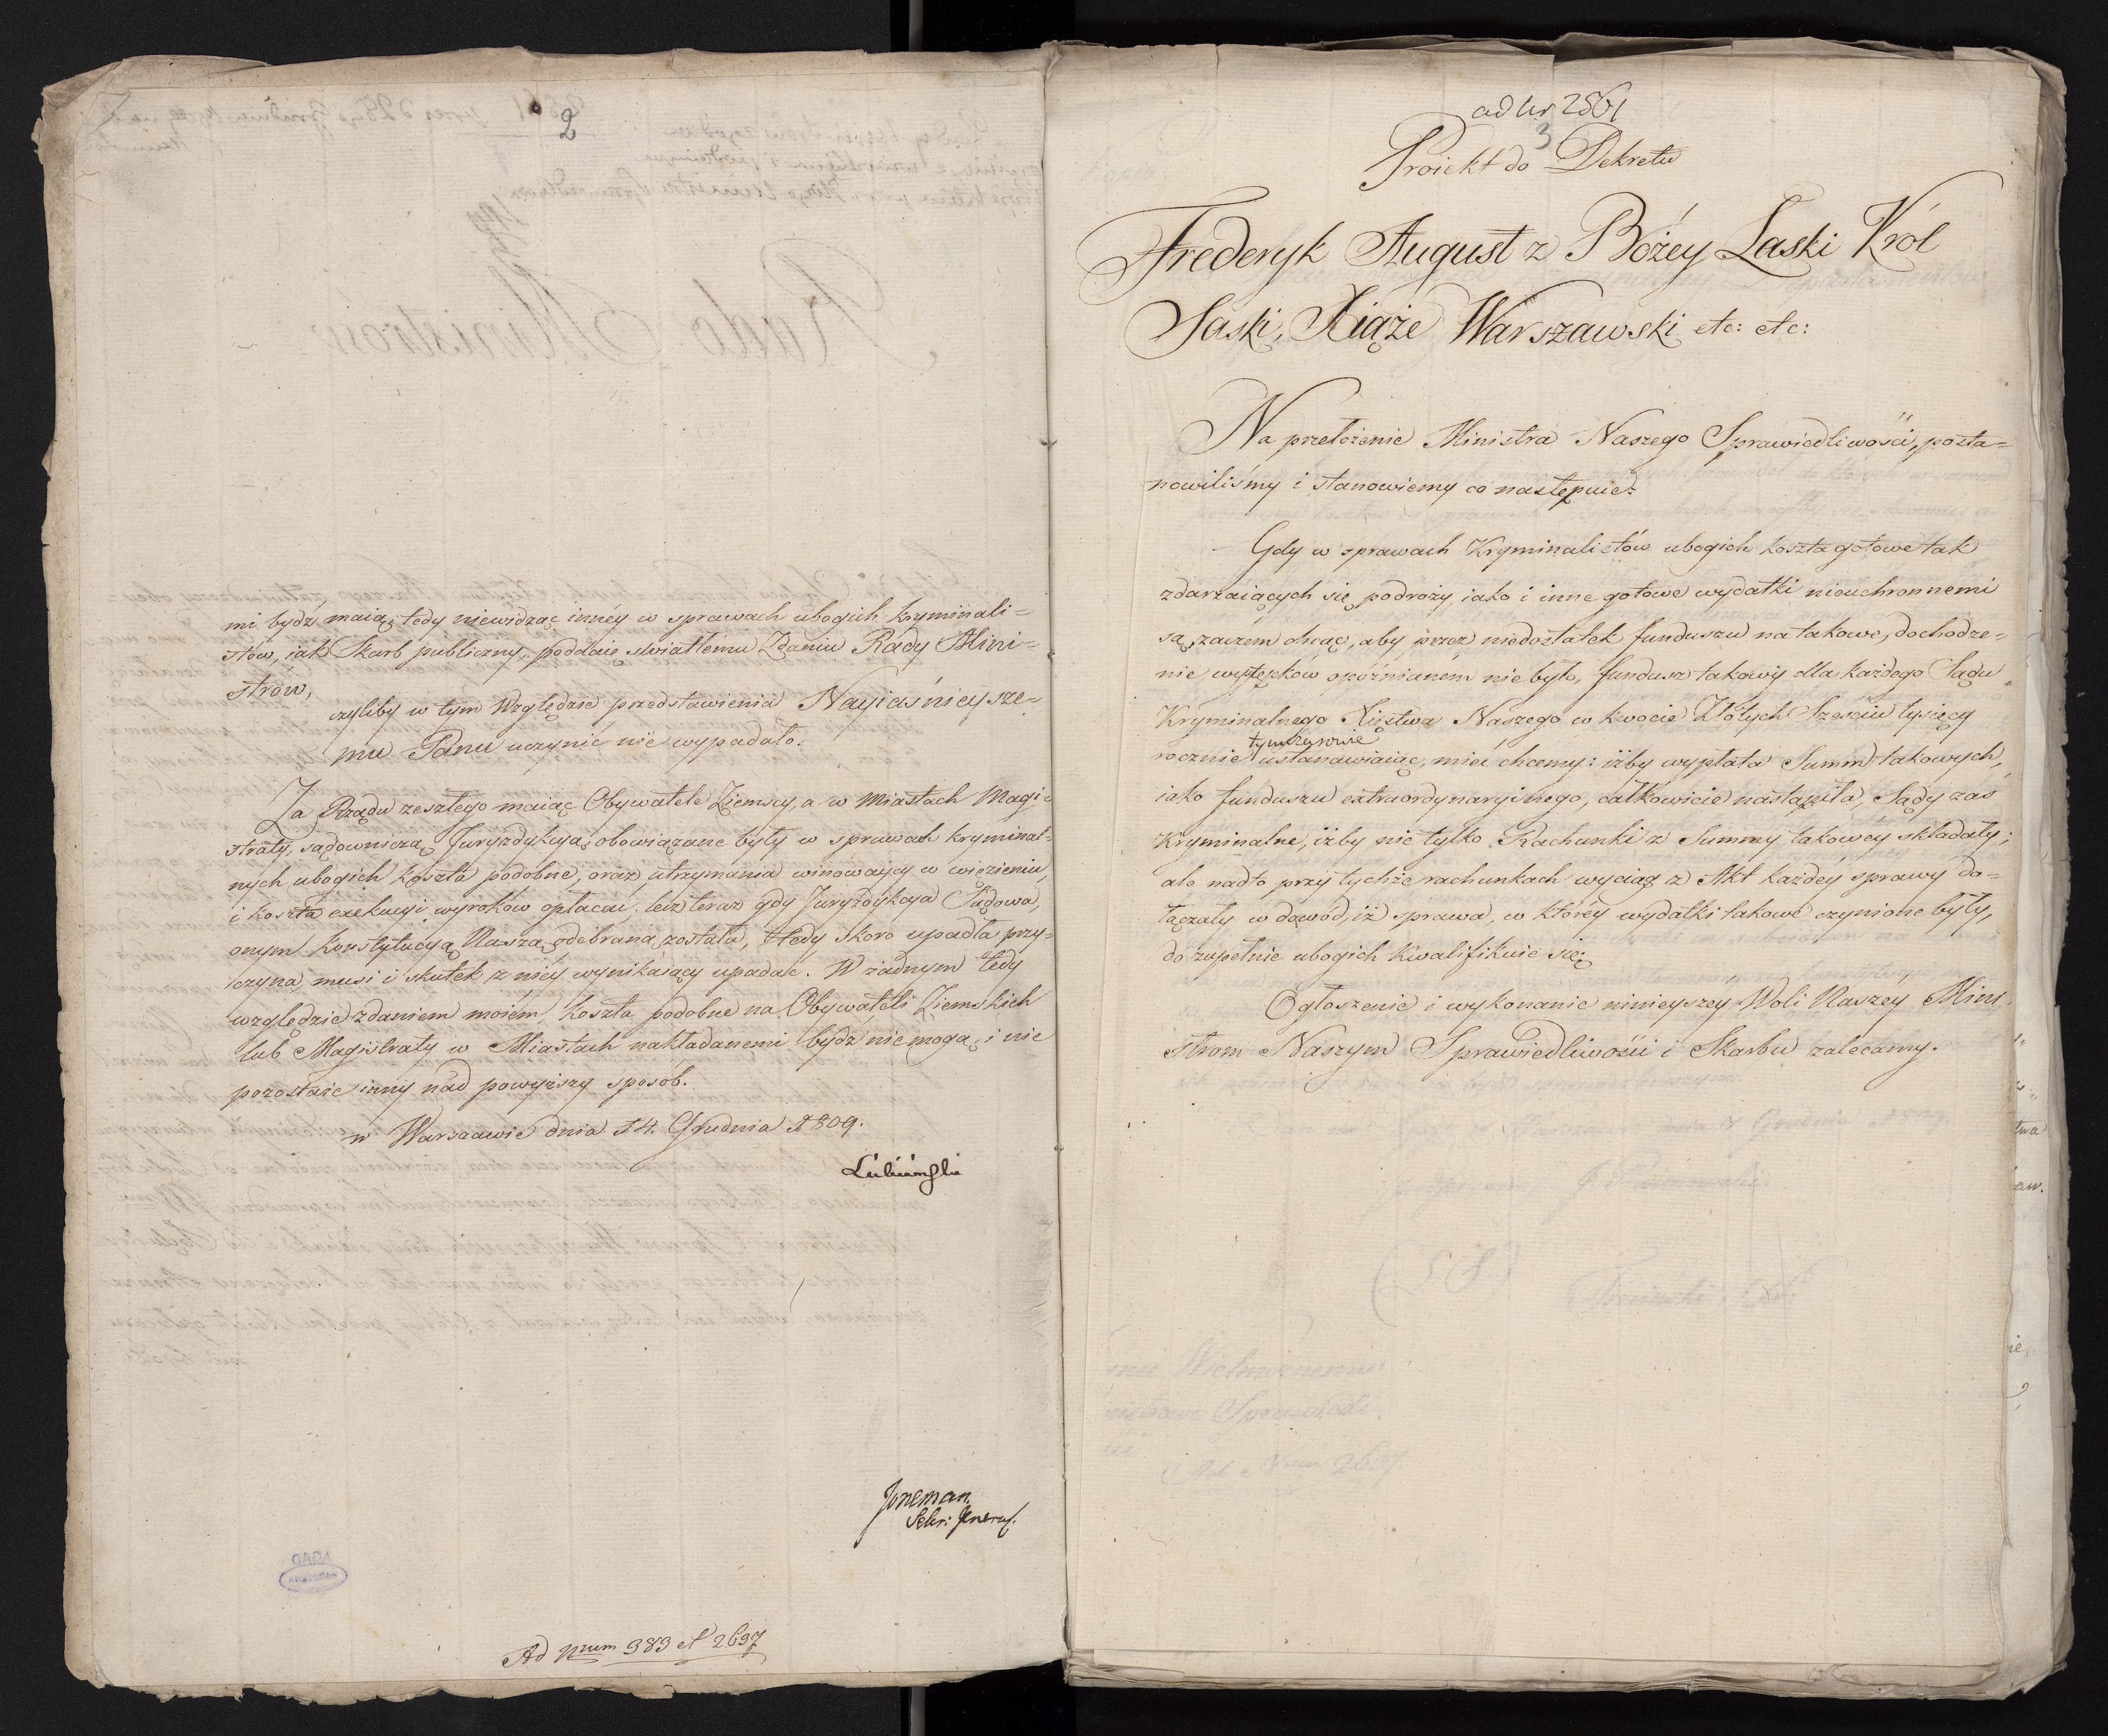 2
mi bydź maią, tedy niewidząc innéy w sprawach ubogich kryminali=
stów, iak Skarb publiczny, poddaię swiatłemu Zdaniu Rady Mini=
strow,
czyliby w tym Względzie przedstawienia Nayiaśnieysze=
mu Panu uczynić nie wypadało.
Za Rządu zeszłego maiąc Obywatele Ziemscy, a w Miastach Magi=
straty, sądowniczą Juryzdykcyą, obowiązane były w sprawach kryminal=
nych ubogich koszta podobne, oraz utrzymania winowaycy w więzieniu,
i koszta exekucyi wyroków opłacać. lecz teraz gdy Juryzdykcya Sądowa,
onym konstytucyą Naszą odebraną została, tedy skoro upadła przy=
czyna, musi i skutek z niéy wynikaiący upadać. W żadnym tedy
względzie zdaniem moiém, koszta podobne na Obywateli Ziemskich
lub Magistraty w Miastach nakładanemi bydź nie mogą, i nie
pozostaie inny nad powyższy sposób.
w Warszawie dnia 14. Grudnia 1809.
Łubieński
Joneman.
Sekr: Jeneral.
AGAD
Ad Num 983 et 2697
ad Nr 2861
3
Proiekt do Dekretu
Frederyk August z Bożéy Łaski Król
Saski, Xiąże Warszawski etc: etc:
Na przełożenie Ministra Naszego Sprawiedliwości, posta=
nowiliśmy i stanowiemy co następuie:
Gdy w sprawach Kryminalistów ubogich koszta gotowe tak
zdarzaiących się podroży, iako i inne gotowe wydatki nieuchronnemi
są, zaczem chcąc, aby przez niedostatek funduszu na takowe, dochodze=
nie występków opóźnianém nie było, fundusz takowy dla każdego Sądu
Kryminalnego Xięstwa Naszego w kwocie Złotych Sześciu tysięcy
tymczasowie
rocznie ustanawiaiąc, mieć chcemy: iżby wypłata Summ takowych,
iako funduszu extraordynaryinego, całkowicie nastąpiła, Sądy zaś
Kryminalne, iżby nie tylko Rachunki z Summy takowey składały;
ale nadto przy tychże rachunkach wyciąg z Akt każdéy sprawy do=
łączały w dowód, iż sprawa, w któréy wydatki takowe czynione były,
do zupełnie ubogich kwalifikuie się.
Ogłoszenie i wykonanie ninieyszéy Woli Naszéy Mini=
strom Naszym Sprawiedliwości i Skarbu zalecamy.